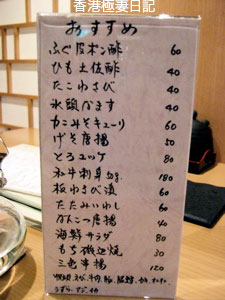 香港極妻日記
おすすめ
ふぐ皮ポン酢 60
ひも土佐酢 40
たこわさび 40
氷頭なます 40
かにみそキューリ 60
げそ唐揚 50
とろユッケ 80
和牛刺身 50g. 180
板わさび漬 60
たたみいわし 60
なんこつ唐揚 40
海鮮サラダ 80
もち磯辺焼 30
三色串揚 120